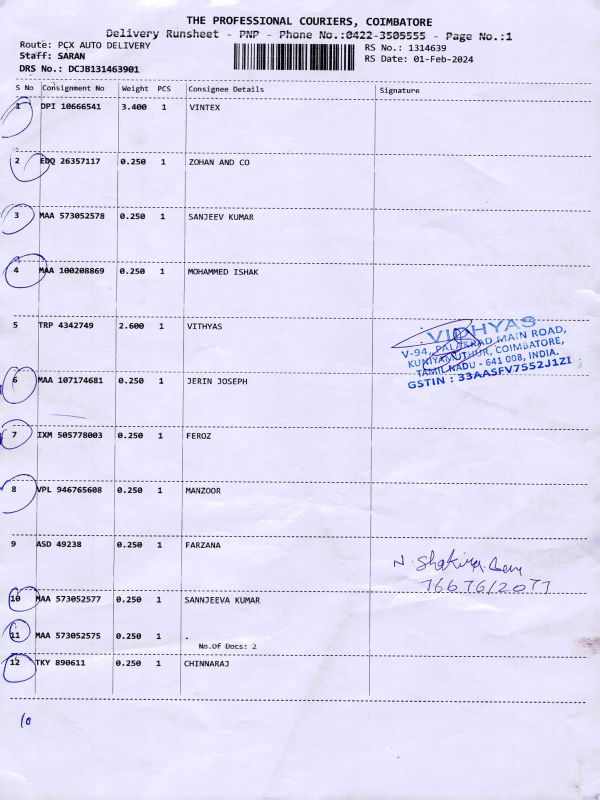 THE PROFESSIONAL COURIERS, COIMBATORE
Delivery Runsheet - PNP - Phone No.:0422-3505555 - Page No.:1
Route: PCX AUTO DELIVERY
Staff: SARAN
DRS No.: DCJB131463901
RS No.: 1314639
RS Date: 01-Feb-2024
S No Consignment No Weight PCS Consignee Details Signature
1 DPI 10666541 3.400 1 VINTEX
2 EDQ 26357117 0.250 1 ZOHAN AND CO
3 MAA 573052578 0.250 1 SANJEEV KUMAR
4 MAA 100208869 0.250 1 MOHAMMED ISHAK
5 TRP 4342749 2.600 1 VITHYAS
VIDHYAS
V-94, PALAKKAD MAIN ROAD,
KUNIYAMUTHUR, COIMBATORE,
TAMIL NADU - 641 008, INDIA.
GSTIN : 33AASFV7552J1ZI
6 MAA 107174681 0.250 1 JERIN JOSEPH
7 IXM 505778003 0.250 1 FEROZ
8 VPL 946765608 0.250 1 MANZOOR
9 ASD 49238 0.250 1 FARZANA
N. Shakira
7667612077
10 MAA 573052577 0.250 1 SANNJEEVA KUMAR
11 MAA 573052575 0.250 1 .
No.Of Docs: 2
12 TKY 890611 0.250 1 CHINNARAJ
10